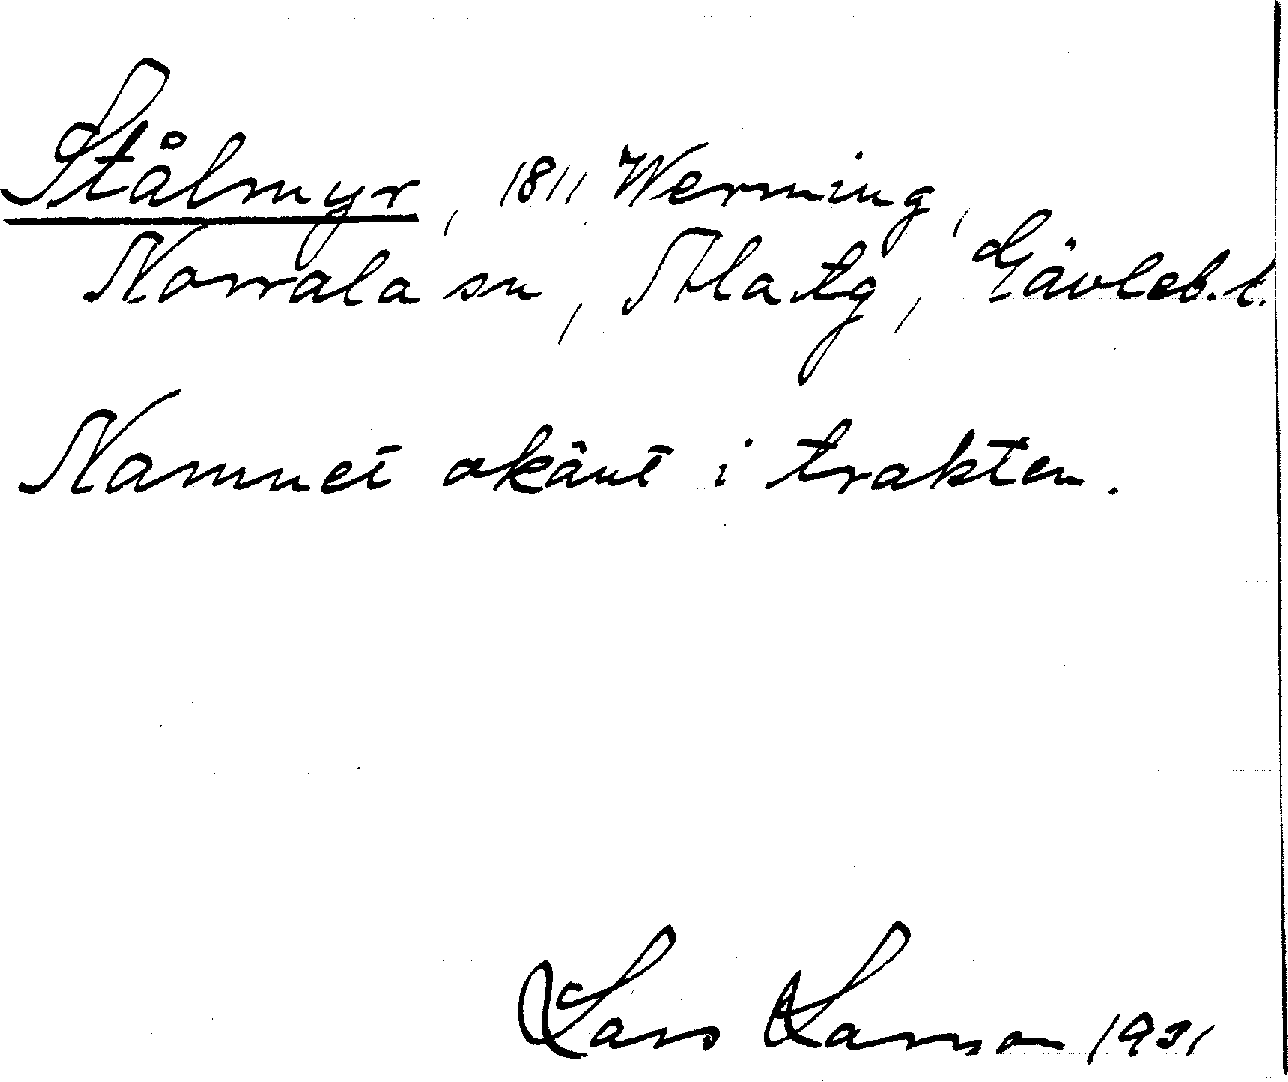 Stålmyr, 1811 Werming,
Norrala sn, Ala tg, Gävleb. l.
Namnet okänt i trakten.
Lars Larsson 1931